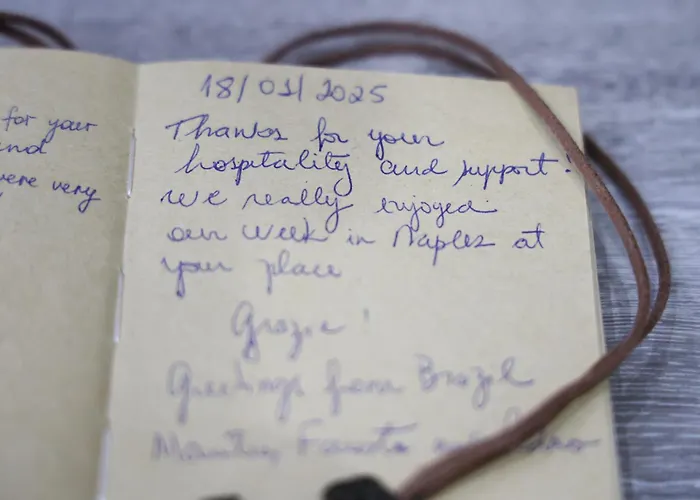 for your
and
were very
18/01/2025
Thanks for your
hospitality and support!
we really enjoyed
our week in Naples at
your place
Grazie!
Greetings from Brazil